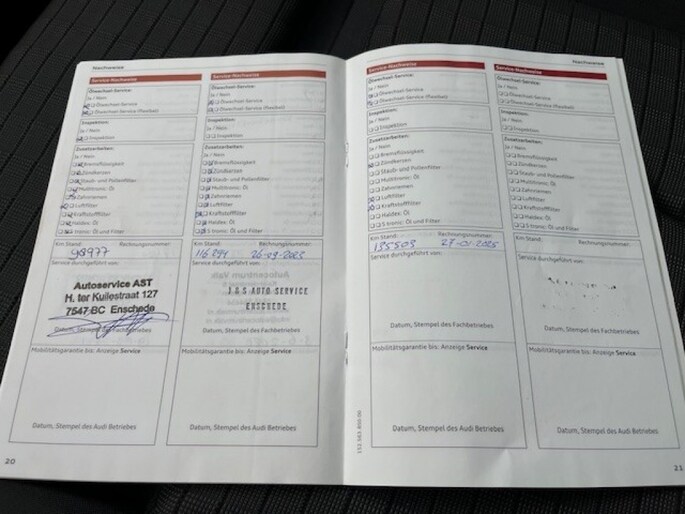 Nachweise
Service-Nachweise
Ölwechsel-Service:
Ja / Nein
Ölwechsel-Service
Ölwechsel-Service (flexibel)
Inspektion:
Ja / Nein
Inspektion
Zusatzarbeiten:
Ja / Nein
Bremsflüssigkeit
Zündkerzen
Staub- und Pollenfilter
Multitronic: Öl
Zahnriemen
Luftfilter
Kraftstofffilter
Haldex: Öl
S tronic: Öl und Filter
Km Stand: Rechnungsnummer:
98977
Service durchgeführt von:
Autoservice AST
H. ter Kuilestraat 127
7547 BC Enschede
Datum, Stempel des Fachbetriebes
Mobilitätsgarantie bis: Anzeige Service
Datum, Stempel des Audi Betriebes
20
Service-Nachweise
Ölwechsel-Service:
Ja / Nein
Ölwechsel-Service
Ölwechsel-Service (flexibel)
Inspektion:
Ja / Nein
Inspektion
Zusatzarbeiten:
Ja / Nein
Bremsflüssigkeit
Zündkerzen
Staub- und Pollenfilter
Multitronic: Öl
Zahnriemen
Luftfilter
Kraftstofffilter
Haldex: Öl
S tronic: Öl und Filter
Km Stand: Rechnungsnummer:
116294 26-09-2023
Service durchgeführt von:
J & S AUTO SERVICE
ENSCHEDE
Datum, Stempel des Fachbetriebes
Mobilitätsgarantie bis: Anzeige Service
Datum, Stempel des Audi Betriebes
Nachweise
Service-Nachweise
Ölwechsel-Service:
Ja / Nein
Ölwechsel-Service
Ölwechsel-Service (flexibel)
Inspektion:
Ja / Nein
Inspektion
Zusatzarbeiten:
Ja / Nein
Bremsflüssigkeit
Zündkerzen
Staub- und Pollenfilter
Multitronic: Öl
Zahnriemen
Luftfilter
Kraftstofffilter
Haldex: Öl
S tronic: Öl und Filter
Km Stand: Rechnungsnummer:
135503 27-01-2025
Service durchgeführt von:
Datum, Stempel des Fachbetriebes
Mobilitätsgarantie bis: Anzeige Service
Datum, Stempel des Audi Betriebes
152.5R3.R50.00
Service-Nachweise
Ölwechsel-Service:
Ja / Nein
Ölwechsel-Service
Ölwechsel-Service (flexibel)
Inspektion:
Ja / Nein
Inspektion
Zusatzarbeiten:
Ja / Nein
Bremsflüssigkeit
Zündkerzen
Staub- und Pollenfilter
Multitronic: Öl
Zahnriemen
Luftfilter
Kraftstofffilter
Haldex: Öl
S tronic: Öl und Filter
Km Stand: Rechnungsnummer:
Service durchgeführt von:
Datum, Stempel des Fachbetriebes
Mobilitätsgarantie bis: Anzeige Service
Datum, Stempel des Audi Betriebes
21